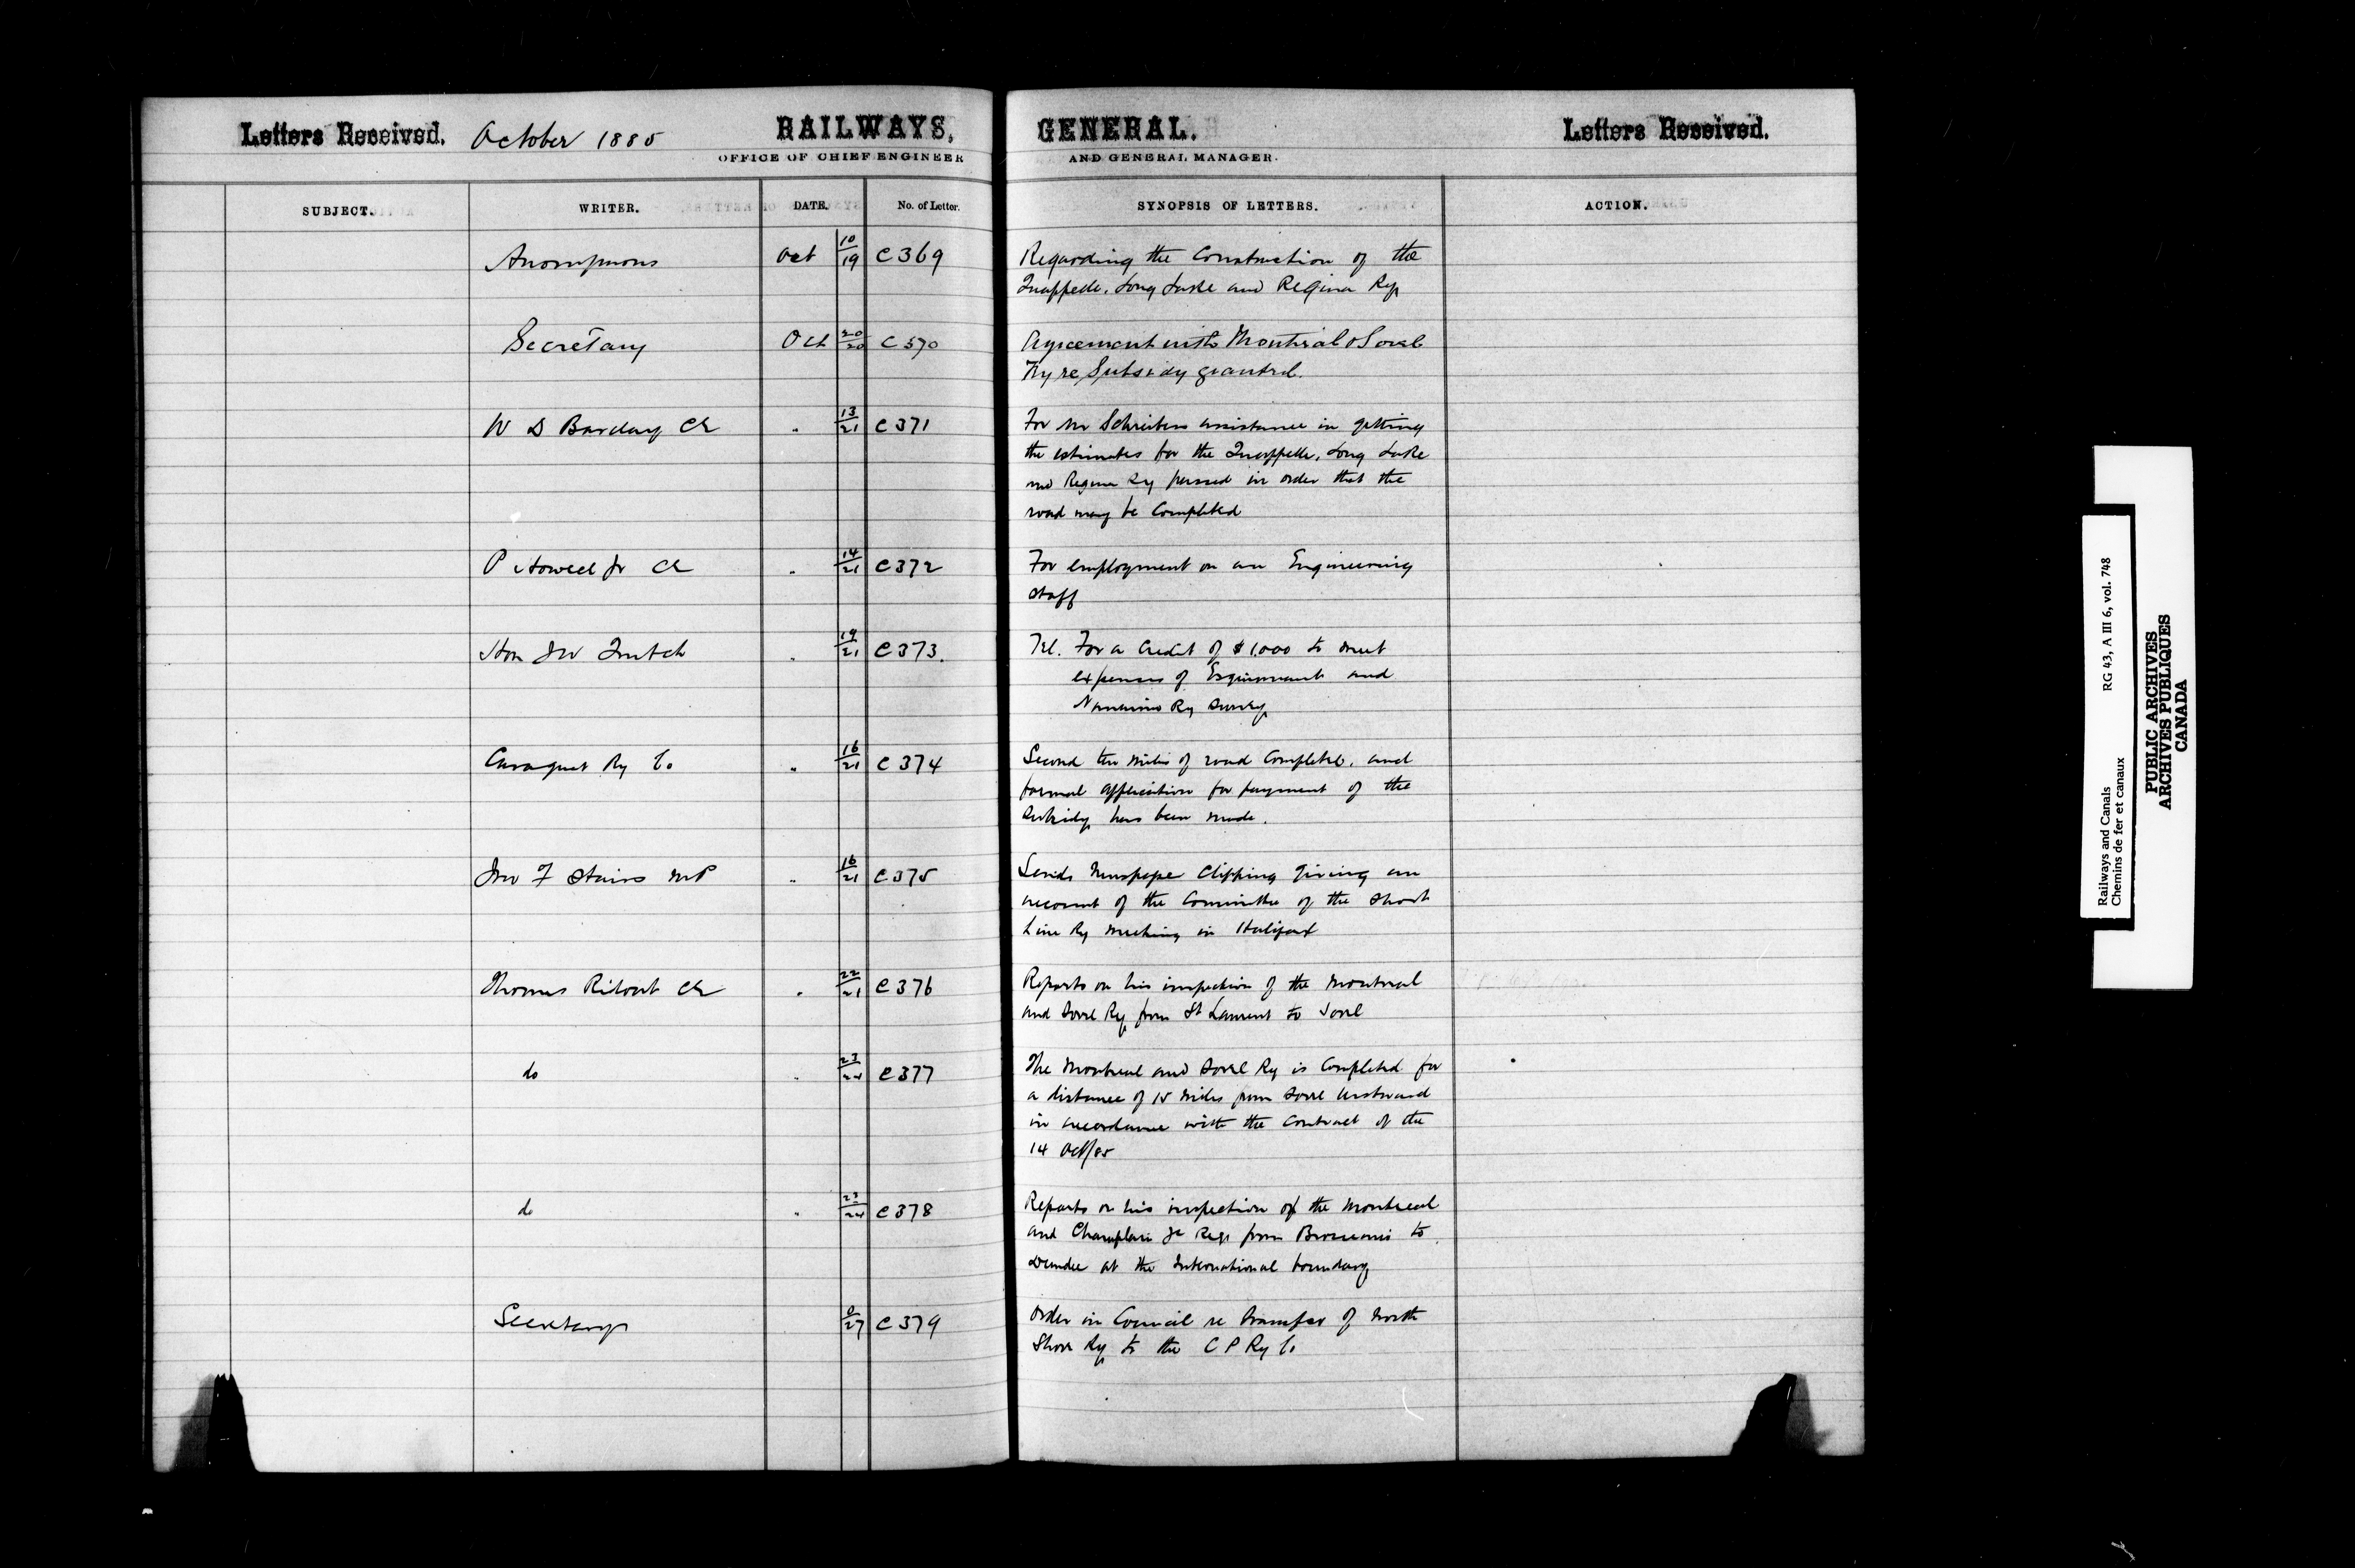 Letters Received. October 1885 RAILWAYS, GENERAL. Letters Received.
OFFICE OF CHIEF ENGINEER AND GENERAL MANAGER.
SUBJECT. WRITER. DATE. No. of Letter. SYNOPSIS OF LETTERS. ACTION.
Anonymous Oct 10/19 C369 Regarding the Construction of the
Quappelle, Long Lake and Regina Ry
Secretary Oct 20/20 C370 Agreement with Montreal & Sorel
Ry re Subsidy granted.
W D Barclay CE " 13/21 C371 For Mr Schreibers assistance in getting
the estimates for the Quappelle, Long Lake
and Regina Ry passed in order that the
road may be Completed
P Howell Jr CE " 14/21 C372 For employment on an Engineering
Staff
Hon JW Trutch " 19/21 C373. Tel. For a Credit of $1,000 to meet
expenses of Esquimault and
Nanaimo Ry Survey
Caraquet Ry Co " 16/21 C374 Second ten miles of road Completed, and
formal application for payment of the
Subsidy has been made.
Jno F Stairs MP " 16/21 C375 Sends Newspaper Clipping giving an
account of the Committee of the Short
Line Ry meeting in Halifax
Thomas Ridout CE " 22/21 C376 Reports on his inspection of the Montreal
and Sorel Ry from St Laurent to Sorel
do " 23/24 C377 The Montreal and Sorel Ry is Completed for
a distance of 15 miles from Sorel Westward
in accordance with the Contract of the
14 Oct/85
do " 23/24 C378 Reports on his inspection of the Montreal
and Champlain Jc Rys from Brosseaus to
Dundee at the International boundary
Secretary 27 C379 Order in Council re transfer of North
Shore Ry to the C P Ry Co
Railways and Canals RG 43, A III 6, vol. 748
Chemins de fer et canaux
PUBLIC ARCHIVES
ARCHIVES PUBLIQUES
CANADA